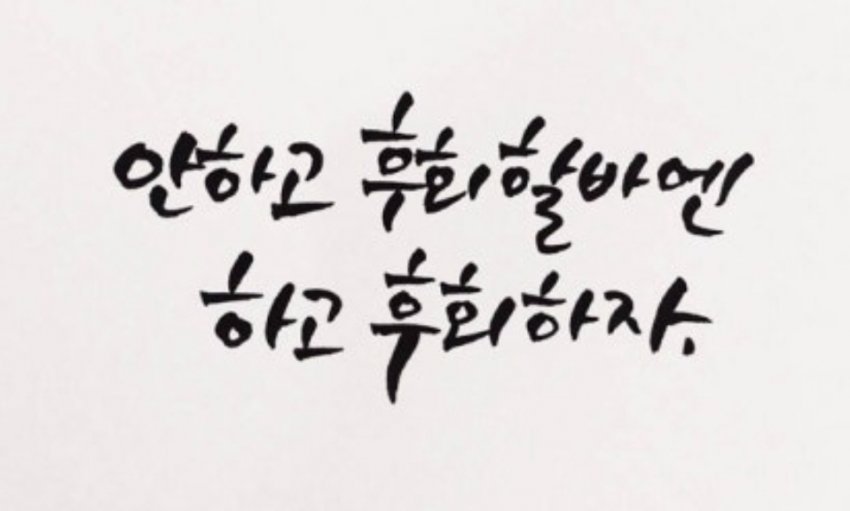 안하고 후회할바엔
하고 후회하자.